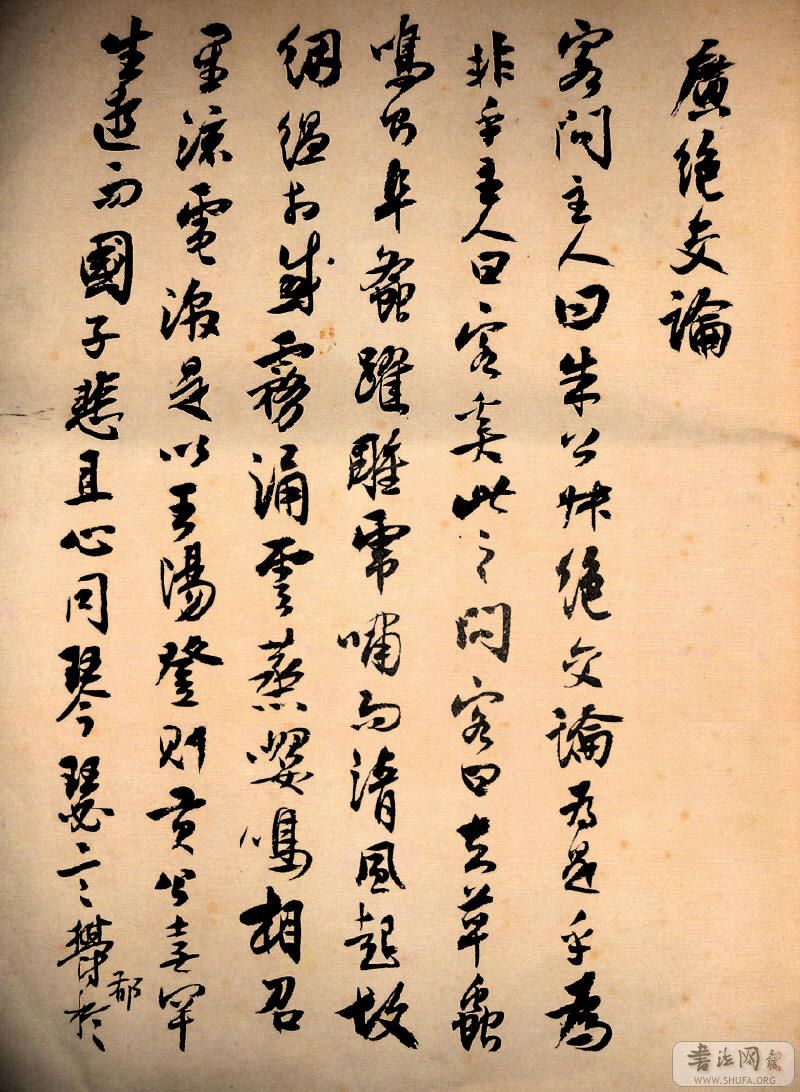 廣絕交論
客問主人曰朱公叔絕交論為是乎為
非乎主人曰客奚此之問客曰夫草蟲
鳴則阜螽躍雕虎嘯而清風起故
絪縕相感霧涌雲蒸嚶鳴相召
星流電激是以王陽登則貢公喜罕
生逝而國子悲且心同琴瑟言鬱於
郁
書法网
WWW.SHUFA.ORG